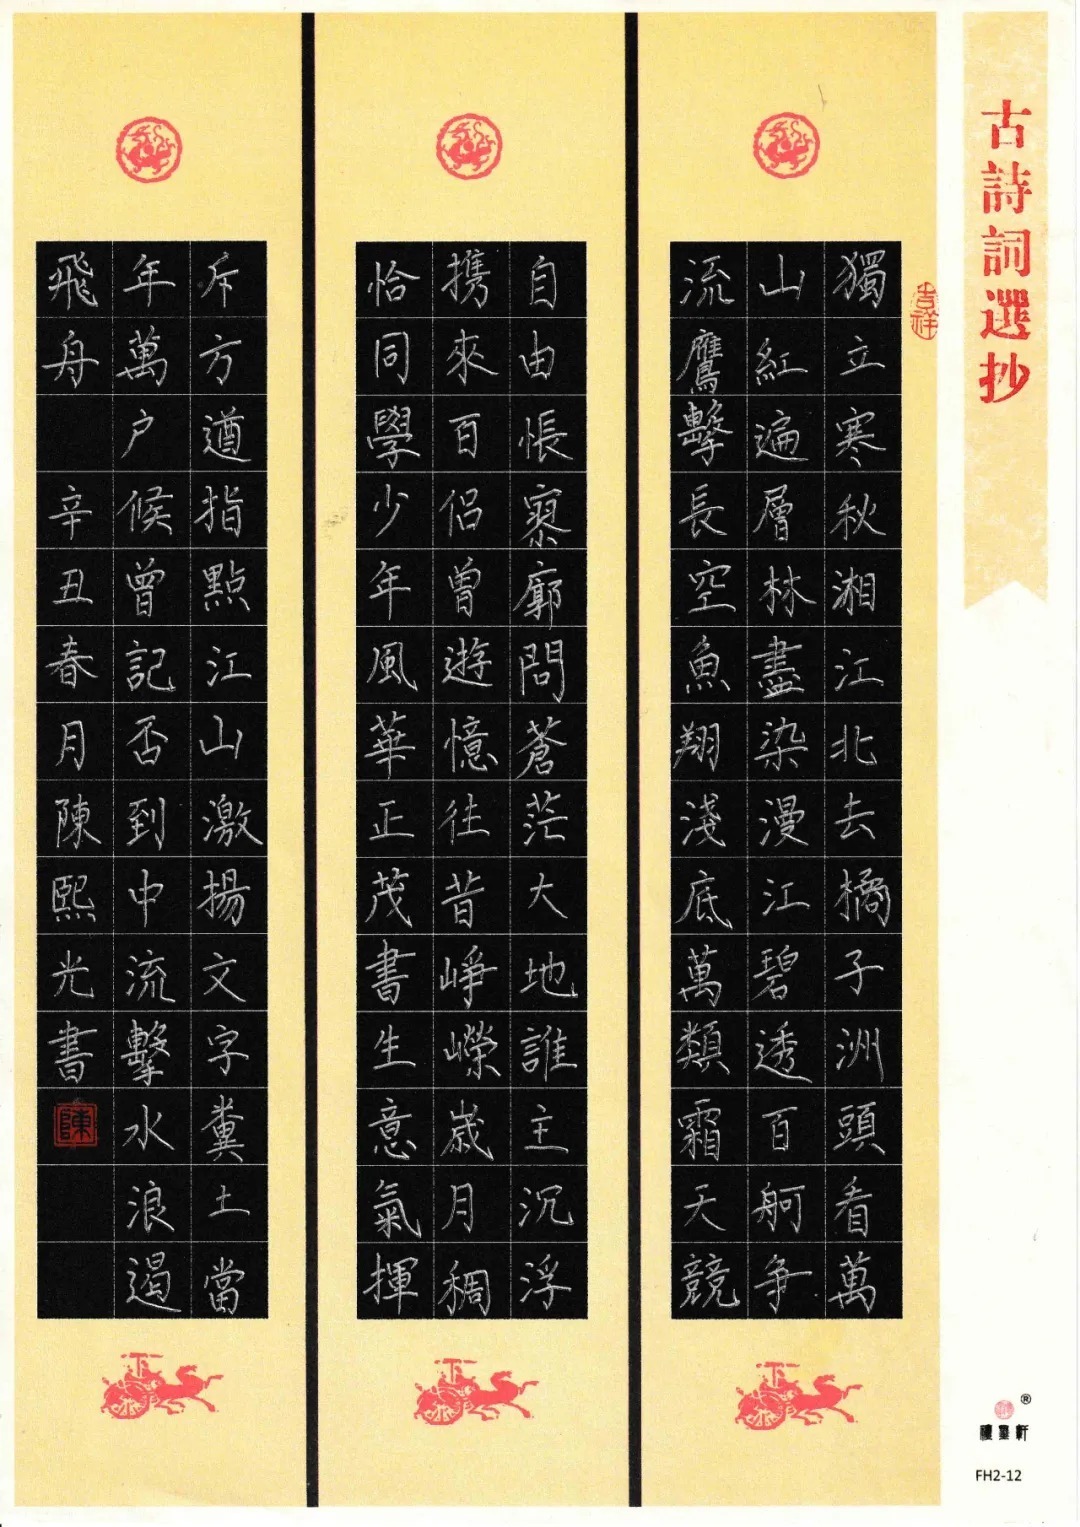 古詩詞選抄
吉祥
獨立寒秋湘江北去橘子洲頭看萬
山紅遍層林盡染漫江碧透百舸争
流鷹擊長空魚翔淺底萬類霜天競
自由悵寥廓問蒼茫大地誰主沉浮
携來百侣曾遊憶往昔崢嶸歲月稠
恰同學少年風華正茂書生意氣揮
斥方遒指點江山激揚文字糞土當
年萬户候曾記否到中流擊水浪遏
飛舟 辛丑春月陳熙光書
陳
®
FH2-12